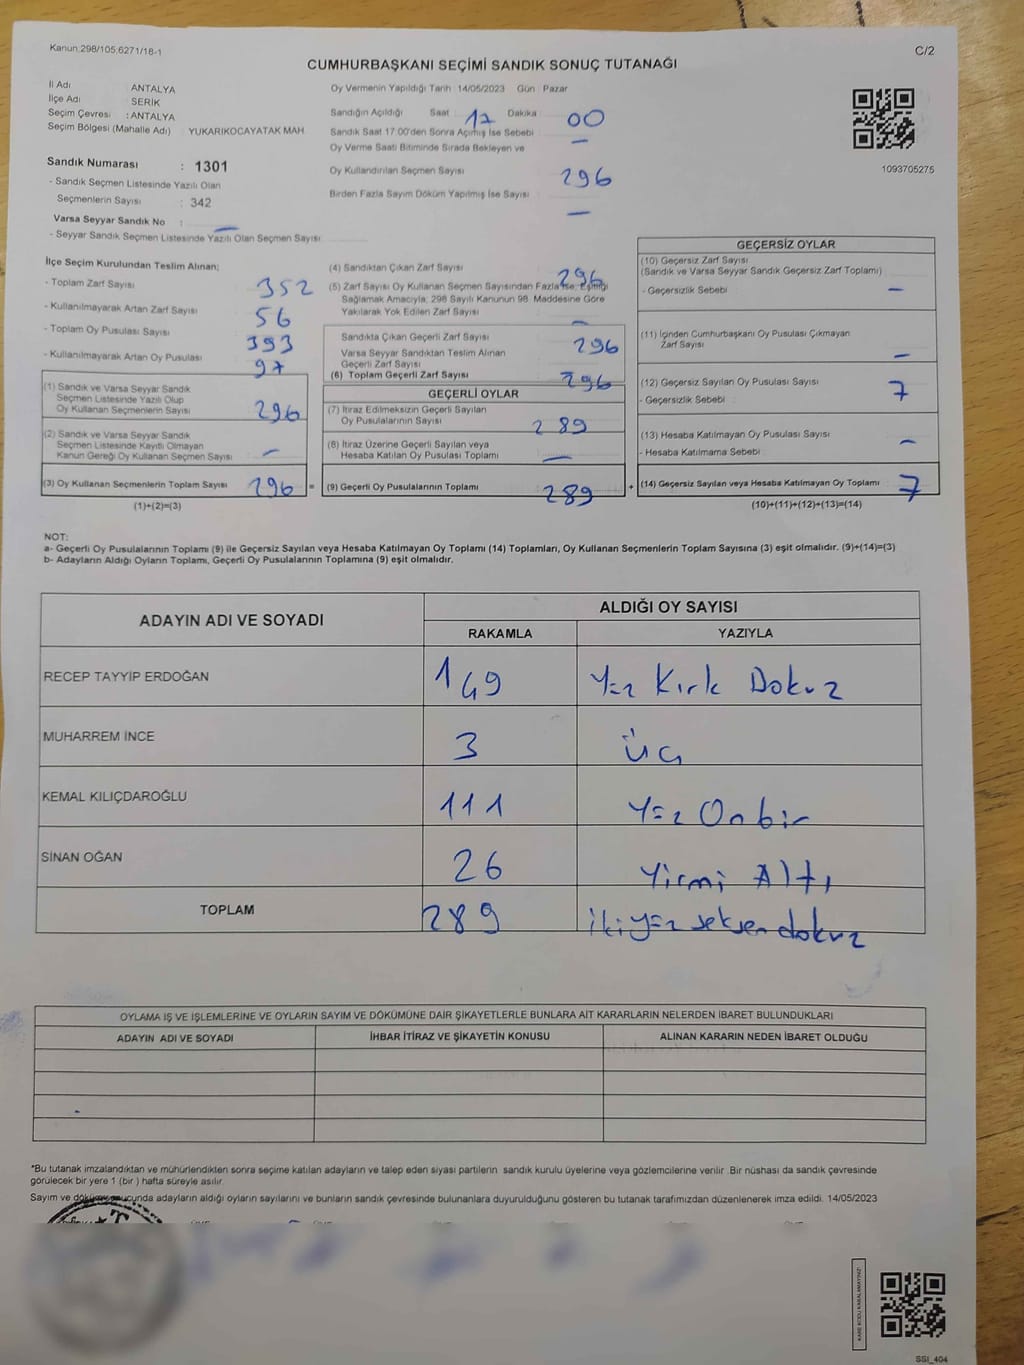 Kanun:298/105.6271/18-1
C/2
CUMHURBAŞKANI SEÇİMİ SANDIK SONUÇ TUTANAĞI
İl Adı : ANTALYA
İlçe Adı : SERİK
Seçim Çevresi : ANTALYA
Seçim Bölgesi (Mahalle Adı) : YUKARIKOCAYATAK MAH.
Sandık Numarası : 1301
- Sandık Seçmen Listesinde Yazılı Olan
Seçmenlerin Sayısı : 342
Varsa Seyyar Sandık No : —
- Seyyar Sandık Seçmen Listesinde Yazılı Olan Seçmen Sayısı
Oy Vermenin Yapıldığı Tarih 14/05/2023 Gün Pazar
Sandığın Açıldığı Saat 17 Dakika 00
Sandık Saat 17:00'den Sonra Açılmış İse Sebebi : —
Oy Verme Saati Bitiminde Sırada Bekleyen ve
Oy Kullandırılan Seçmen Sayısı : 296
Birden Fazla Sayım Döküm Yapılmış İse Sayısı : —
1093705275
İlçe Seçim Kurulundan Teslim Alınan;
- Toplam Zarf Sayısı : 352
- Kullanılmayarak Artan Zarf Sayısı : 56
- Toplam Oy Pusulası Sayısı : 393
- Kullanılmayarak Artan Oy Pusulası : 97
(1) Sandık ve Varsa Seyyar Sandık
Seçmen Listesinde Yazılı Olup
Oy Kullanan Seçmenlerin Sayısı : 296
(2) Sandık ve Varsa Seyyar Sandık
Seçmen Listesinde Kayıtlı Olmayan
Kanun Gereği Oy Kullanan Seçmen Sayısı : —
(3) Oy Kullanan Seçmenlerin Toplam Sayısı 296 =
(1)+(2)=(3)
(4) Sandıktan Çıkan Zarf Sayısı : 296
(5) Zarf Sayısı Oy Kullanan Seçmen Sayısından Fazla İse, Eşitliği
Sağlamak Amacıyla; 298 Sayılı Kanunun 98. Maddesine Göre
Yakılarak Yok Edilen Zarf Sayısı : —
Sandıkta Çıkan Geçerli Zarf Sayısı : 296
Varsa Seyyar Sandıktan Teslim Alınan
Geçerli Zarf Sayısı
(6) Toplam Geçerli Zarf Sayısı : 296
GEÇERLİ OYLAR
(7) İtiraz Edilmeksizin Geçerli Sayılan
Oy Pusulalarının Sayısı : 289
(8) İtiraz Üzerine Geçerli Sayılan veya
Hesaba Katılan Oy Pusulası Toplamı : —
(9) Geçerli Oy Pusulalarının Toplamı 289 +
GEÇERSİZ OYLAR
(10) Geçersiz Zarf Sayısı
(Sandık ve Varsa Seyyar Sandık Geçersiz Zarf Toplamı)
- Geçersizlik Sebebi : —
(11) İçinden Cumhurbaşkanı Oy Pusulası Çıkmayan
Zarf Sayısı : —
(12) Geçersiz Sayılan Oy Pusulası Sayısı : 7
- Geçersizlik Sebebi :
(13) Hesaba Katılmayan Oy Pusulası Sayısı : —
- Hesaba Katılmama Sebebi :
(14) Geçersiz Sayılan veya Hesaba Katılmayan Oy Toplamı : 7
(10)+(11)+(12)+(13)=(14)
NOT:
a- Geçerli Oy Pusulalarının Toplamı (9) ile Geçersiz Sayılan veya Hesaba Katılmayan Oy Toplamı (14) Toplamları, Oy Kullanan Seçmenlerin Toplam Sayısına (3) eşit olmalıdır. (9)+(14)=(3)
b- Adayların Aldığı Oyların Toplamı, Geçerli Oy Pusulalarının Toplamına (9) eşit olmalıdır.
ADAYIN ADI VE SOYADI ALDIĞI OY SAYISI
RAKAMLA YAZIYLA
RECEP TAYYİP ERDOĞAN 149 Yüz Kırk Dokuz
MUHARREM İNCE 3 üç
KEMAL KILIÇDAROĞLU 111 Yüz Onbir
SİNAN OĞAN 26 Yirmi Altı
TOPLAM 289 ikiyüz seksen dokuz
OYLAMA İŞ VE İŞLEMLERİNE VE OYLARIN SAYIM VE DÖKÜMÜNE DAİR ŞİKAYETLERLE BUNLARA AİT KARARLARIN NELERDEN İBARET BULUNDUKLARI
ADAYIN ADI VE SOYADI İHBAR İTİRAZ VE ŞİKAYETİN KONUSU ALINAN KARARIN NEDEN İBARET OLDUĞU
*Bu tutanak imzalandıktan ve mühürlendikten sonra seçime katılan adayların ve talep eden siyasi partilerin sandık kurulu üyelerine veya gözlemcilerine verilir .Bir nüshası da sandık çevresinde
görülecek bir yere 1 (bir ) hafta süreyle asılır.
Sayım ve döküm sonucunda adayların aldığı oyların sayılarını ve bunların sandık çevresinde bulunanlara duyurulduğunu gösteren bu tutanak tarafımızdan düzenlenerek imza edildi. 14/05/2023
KARE KODU KARALAMAYINIZ!
SSI_404